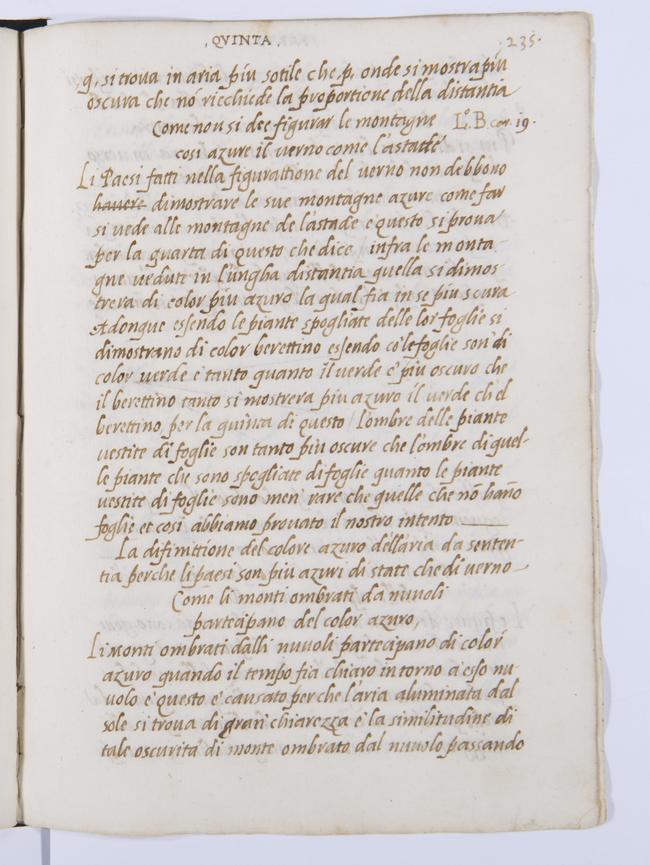 . QVINTA .
. 235 .
q, si troua in aria piu sotile che p, onde si mostra piu
oscura che nó ricchiede la proportione della distantia
Come non si dee figurar le montagne Lº. B. car. 19.
cosi azure il uerno come l'astatte
Li Paesi fatti nella figurattione del uerno non debbono
hauere dimostrare le sue montagne azure come far
si uede alle montagne de l'astade e questo si proua
per la quarta di questo che dice / infra le monta
gne uedute in l'ungha distantia quella si dimos
trera di color piu azuro la qual fia in se piu scura
Adonque essendo le piante spogliate delle lor foglie si
dimostrano di color berettino essendo có le foglie son di
color uerde e tanto quanto il uerde e piu oscuro che
il berettino tanto si mostrera piu azuro il uerde ch el
berettino, per la quinta di questo / l'ombre delle piante
uestite di foglie son tanto piu oscure che l'ombre di quel-
le piante che sono spogliate di foglie quanto le piante
uestite di foglie sono men rare che quelle che nō hāno
foglie et cosi abbiamo prouato il nostro intento
La difinittione del colore azuro dell'aria da senten-
tia perche li paesi son piu azuri di state che di uerno
Come li monti ombrati da nuuoli
partecipano del color azuro,
Li monti ombrati dalli nuuoli partecipano di color
azuro quando il tempo fia chiaro intorno a esso nu-
uolo e questo e causato perche l'aria aluminata dal
sole si troua di gran chiarezza e la similitudine di
tale oscurita di monte ombrato dal nuuolo passando